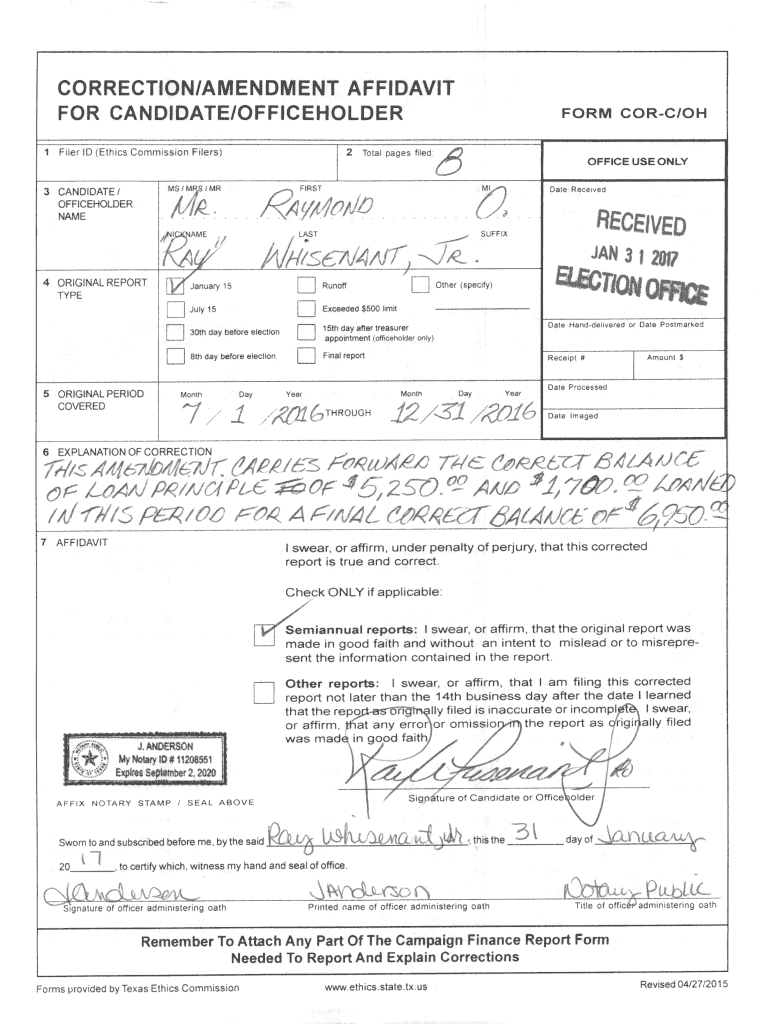 CORRECTION/AMENDMENT AFFIDAVIT
FOR CANDIDATE/OFFICEHOLDER
FORM COR-C/OH
1 Filer ID (Ethics Commission Filers)
2 Total pages filed: 8
OFFICE USE ONLY
3 CANDIDATE / OFFICEHOLDER NAME
MS / MRS / MR FIRST MI
MR. RAYMOND O.
NICKNAME LAST SUFFIX
"RAY" WHISENANT, JR.
Date Received
RECEIVED
JAN 31 2017
ELECTION OFFICE
4 ORIGINAL REPORT TYPE
January 15 Runoff Other (specify)
July 15 Exceeded $500 limit
30th day before election 15th day after treasurer appointment (officeholder only)
8th day before election Final report
Date Hand-delivered or Date Postmarked
Receipt # Amount $
Date Processed
Date Imaged
5 ORIGINAL PERIOD COVERED
Month Day Year Month Day Year
7 / 1 / 2016 THROUGH 12 / 31 / 2016
6 EXPLANATION OF CORRECTION
THIS AMENDMENT CARRIES FORWARD THE CORRECT BALANCE
OF LOAN PRINCIPLE OF $5,250.00 AND $1,700.00 LOANED
IN THIS PERIOD FOR A FINAL CORRECT BALANCE OF $6,950.00
7 AFFIDAVIT
I swear, or affirm, under penalty of perjury, that this corrected
report is true and correct.
Check ONLY if applicable:
Semiannual reports: I swear, or affirm, that the original report was
made in good faith and without an intent to mislead or to misrepre-
sent the information contained in the report.
Other reports: I swear, or affirm, that I am filing this corrected
report not later than the 14th business day after the date I learned
that the report as originally filed is inaccurate or incomplete. I swear,
or affirm, that any error or omission in the report as originally filed
was made in good faith.
J. ANDERSON
My Notary ID # 11208551
Expires September 2, 2020
Ray Whisenant Jr
AFFIX NOTARY STAMP / SEAL ABOVE
Signature of Candidate or Officeholder
Sworn to and subscribed before me, by the said Ray Whisenant, Jr., this the 31 day of January
20 17, to certify which, witness my hand and seal of office.
JAnderson JAnderson Notary Public
Signature of officer administering oath Printed name of officer administering oath Title of officer administering oath
Remember To Attach Any Part Of The Campaign Finance Report Form
Needed To Report And Explain Corrections
Forms provided by Texas Ethics Commission www.ethics.state.tx.us Revised 04/27/2015